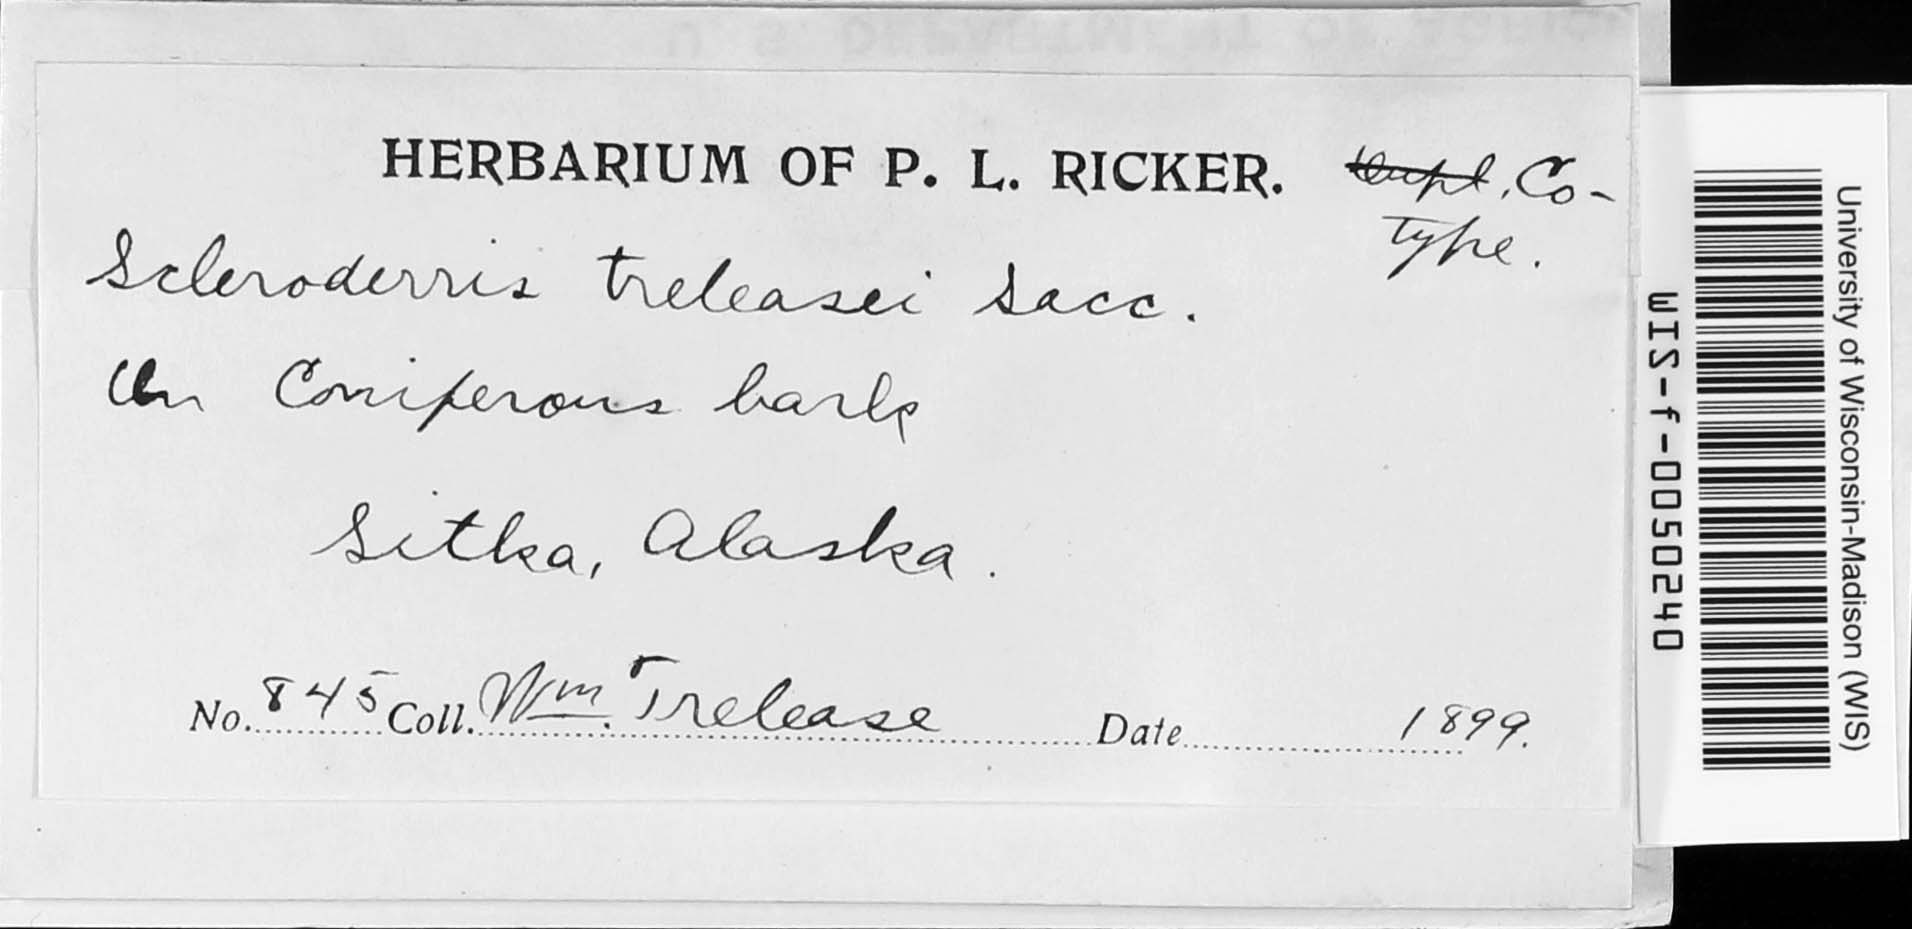 U. S. DEPARTMENT OF AGRIC
HERBARIUM OF P. L. RICKER. Dupl, Co-
Type.
Scleroderris treleasei Sacc.
On Coniferous bark
Sitka, Alaska.
No. 845 Coll. Wm. Trelease Date 1899.
WIS-f-0050240
University of Wisconsin-Madison (WIS)